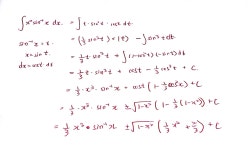 ∫x²sin⁻¹x dx. = ∫t·sin²t·cost dt.
sin⁻¹x = t.
x = sint
dx = cost dt
= (1/3 sin³t)(t) - ∫sin³t dt
= 1/3 t·sin³t + ∫(1-cos²t)(-sint)dt
= 1/3 t·sin³t + cost - 1/3 cos³t + C
= 1/3·x³·sin⁻¹x + cost(1 - 1/3cos²x) + C
= 1/3·x³·sin⁻¹x ± √1-x² (1 - 1/3(1-x²)) + C
= 1/3 x³·sin⁻¹x ± √1-x² (1/3x² + 2/3) + C